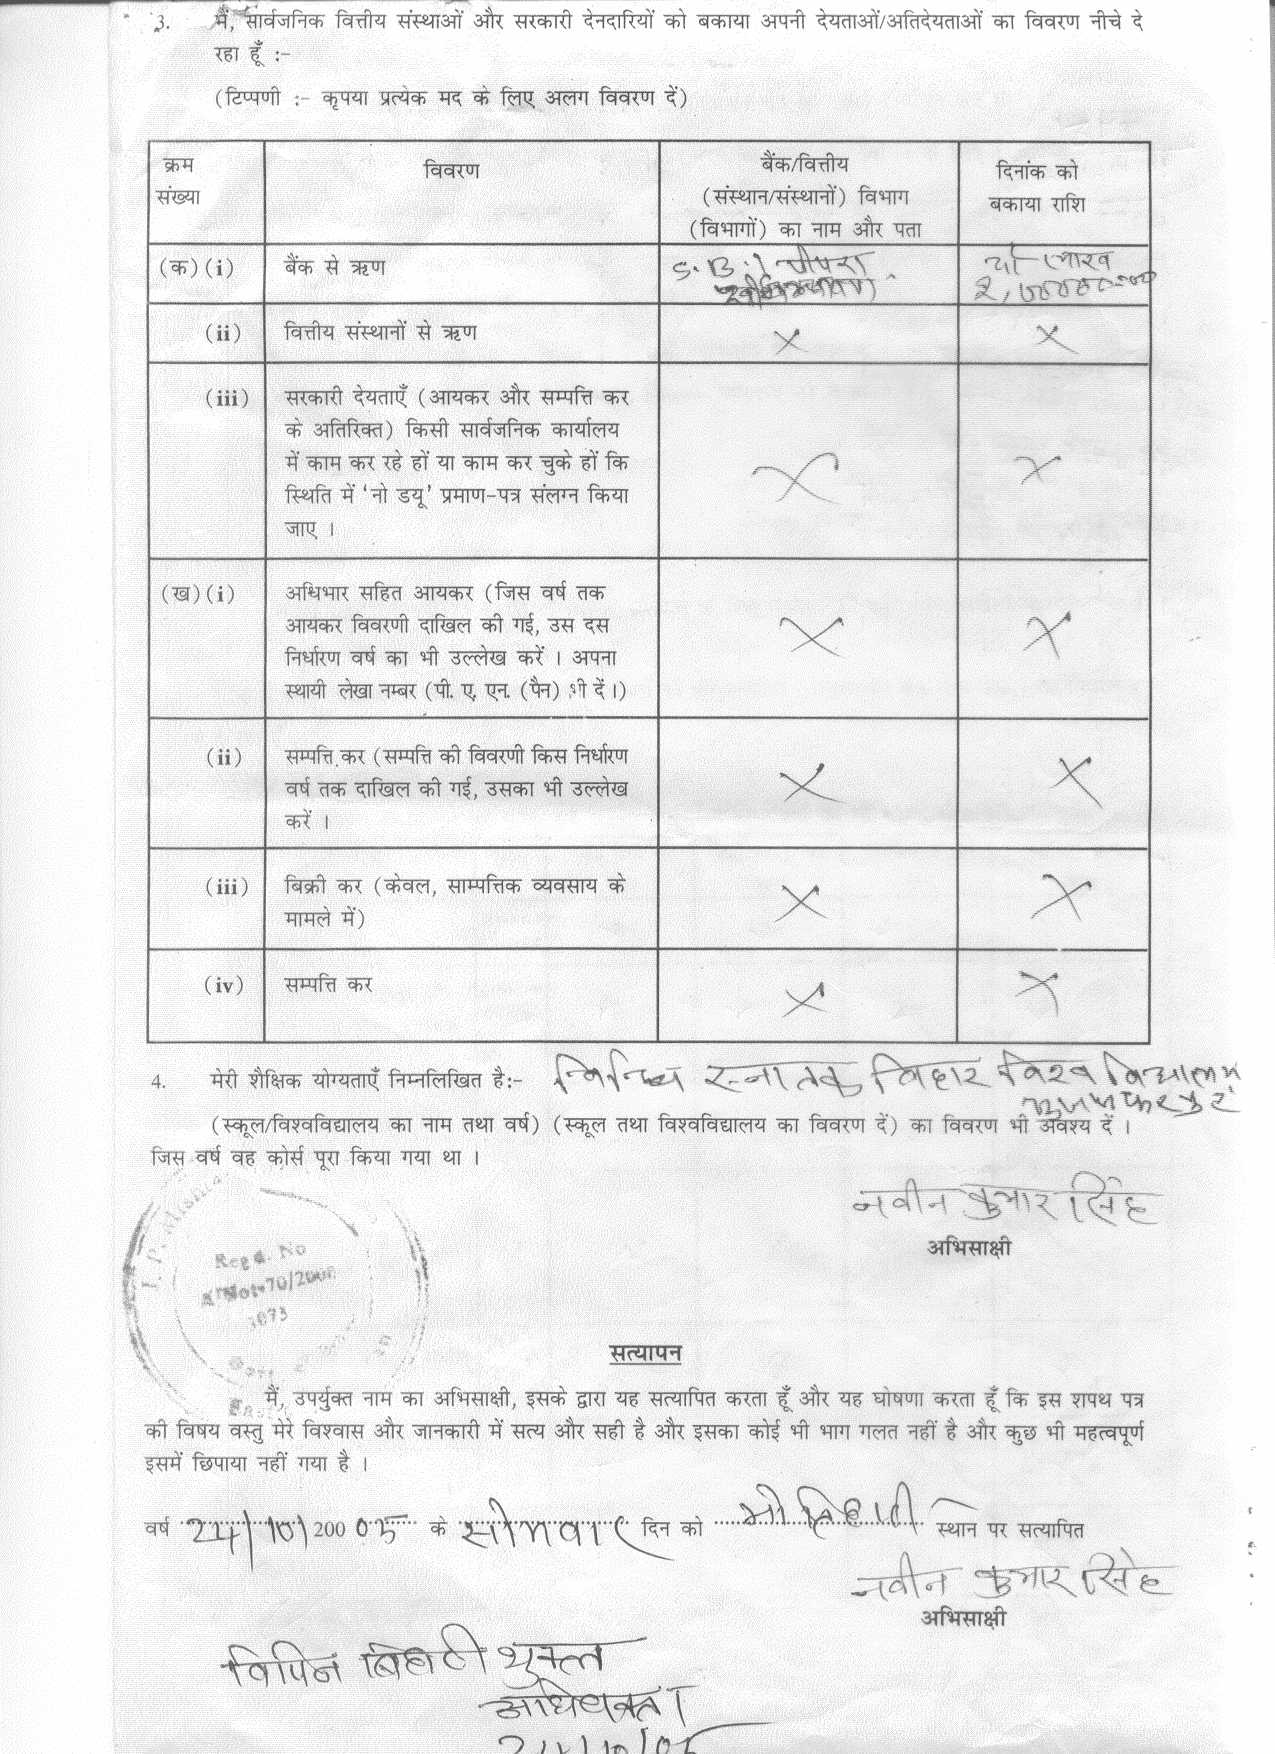 3. मैं, सार्वजनिक वित्तीय संस्थाओं और सरकारी देनदारियों को बकाया अपनी देयताओं/अतिदेयताओं का विवरण नीचे दे
रहा हूँ :-
(टिप्पणी :- कृपया प्रत्येक मद के लिए अलग विवरण दें)
क्रम
संख्या
विवरण
बैंक/वित्तीय
(संस्थान/संस्थानों) विभाग
(विभागों) का नाम और पता
दिनांक को
बकाया राशि
(क) (i) बैंक से ऋण S.B.I
(ii) वित्तीय संस्थानों से ऋण × ×
(iii) सरकारी देयताएँ (आयकर और सम्पत्ति कर
के अतिरिक्त) किसी सार्वजनिक कार्यालय
में काम कर रहे हों या काम कर चुके हों कि
स्थिति में 'नो डयू' प्रमाण-पत्र संलग्न किया
जाए ।
× ×
(ख) (i) अधिभार सहित आयकर (जिस वर्ष तक
आयकर विवरणी दाखिल की गई, उस दस
निर्धारण वर्ष का भी उल्लेख करें । अपना
स्थायी लेखा नम्बर (पी. ए. एन. (पैन) भी दें।)
× ×
(ii) सम्पत्ति कर (सम्पत्ति की विवरणी किस निर्धारण
वर्ष तक दाखिल की गई, उसका भी उल्लेख
करें ।
× ×
(iii) बिक्री कर (केवल, साम्पत्तिक व्यवसाय के
मामले में)
× ×
(iv) सम्पत्ति कर × ×
4. मेरी शैक्षिक योग्यताएँ निम्नलिखित है:- स्नातक विहार विश्व विद्यालय
मुजफ्फरपुर
(स्कूल/विश्वविद्यालय का नाम तथा वर्ष) (स्कूल तथा विश्वविद्यालय का विवरण दें) का विवरण भी अवश्य दें ।
जिस वर्ष वह कोर्स पूरा किया गया था ।
नवीन कुमार सिंह
अभिसाक्षी
Regd. No
सत्यापन
मैं, उपर्युक्त नाम का अभिसाक्षी, इसके द्वारा यह सत्यापित करता हूँ और यह घोषणा करता हूँ कि इस शपथ पत्र
की विषय वस्तु मेरे विश्वास और जानकारी में सत्य और सही है और इसका कोई भी भाग गलत नहीं है और कुछ भी महत्वपूर्ण
इसमें छिपाया नहीं गया है ।
वर्ष 24/10/200 05 के सोमवार दिन को मोतिहारी स्थान पर सत्यापित
नवीन कुमार सिंह
अभिसाक्षी
विपिन बिहारी शुक्ल
अधिवक्ता
24/10/05